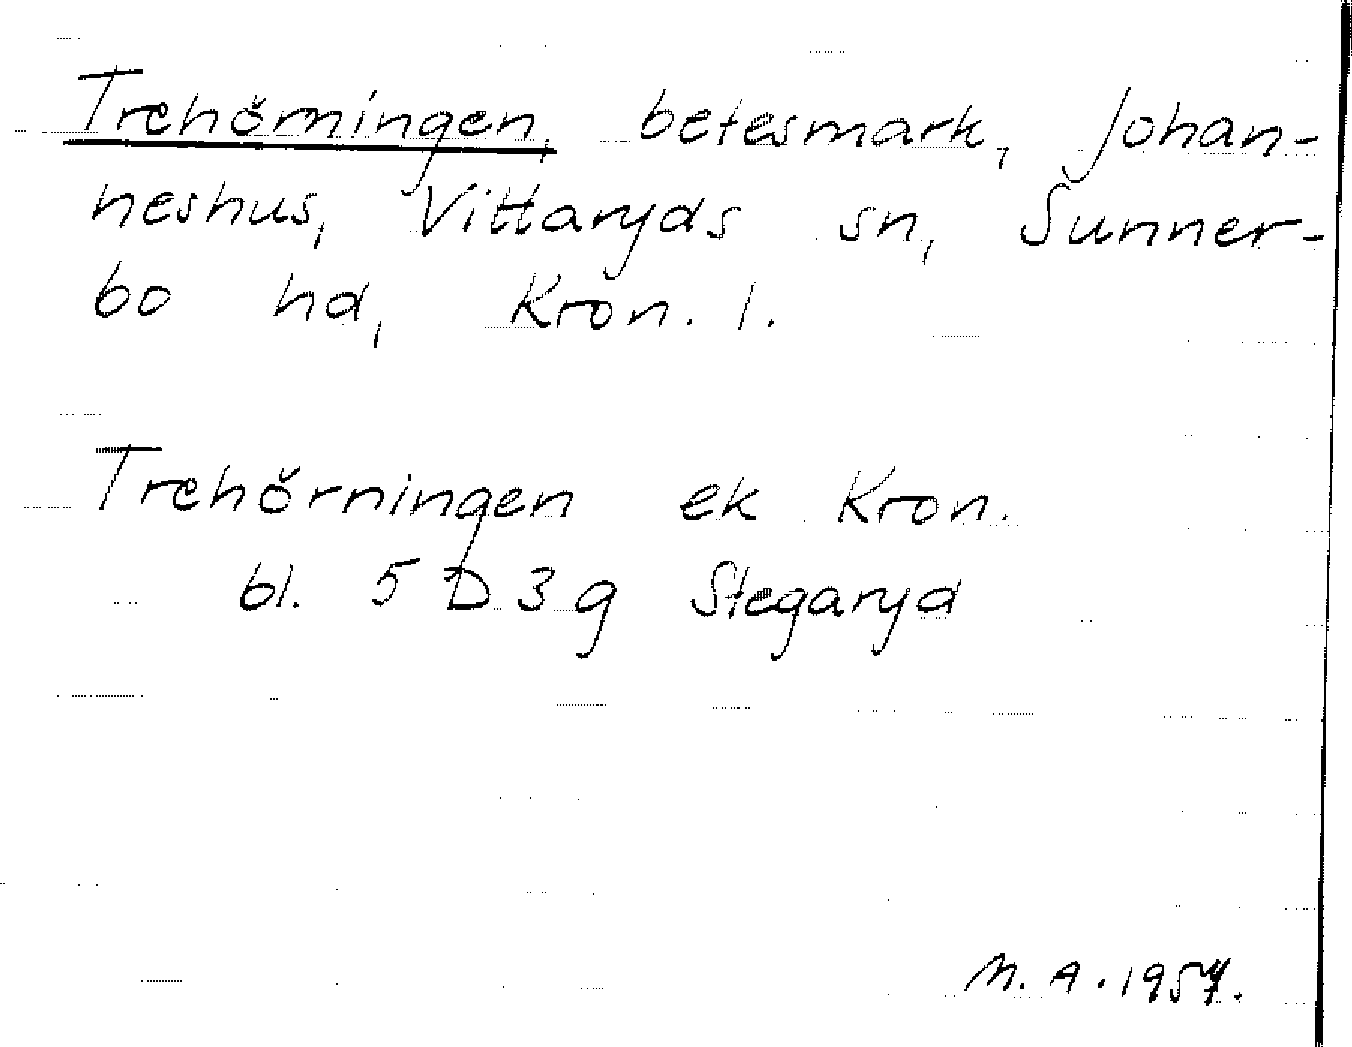 Trehörningen, betesmark, Johan-
neshus, Vittaryds sn, Sunner-
bo hd, Kron. l.
Trehörningen ek Kron.
bl. 5 D 3 g Stegaryd
M. A. 1957.